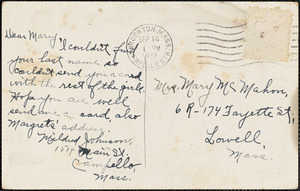 Dear Mary I couldn't find
your last name so
couldn't send you a card
with the rest of the girls.
Hope you are well
send me a card, also
Margrets' address.
Mildred Johnson,
1574 Main St.
Campello,
Mass.
BROCKTON, MASS.
SEP 14
Mrs. Mary Mc Mahon,
6 R-174 Fayette St.,
Lowell,
Mass.